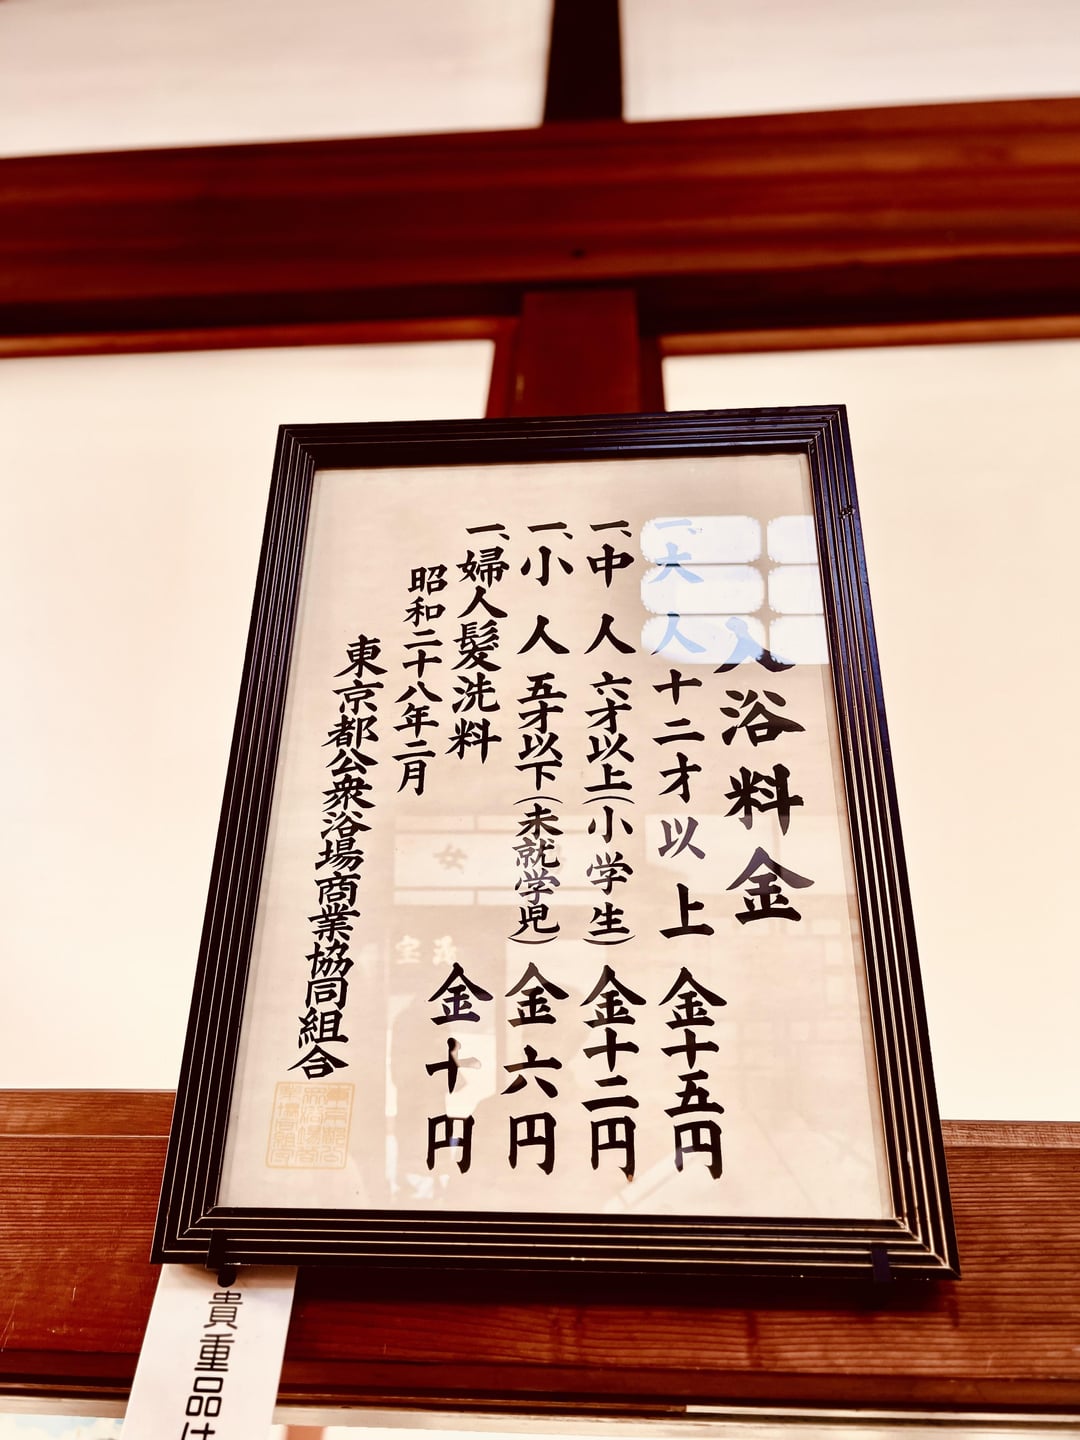 入浴料金
一、大人 十二才以上 金十五円
一、中人 六才以上(小学生) 金十二円
一、小人 五才以下(未就学児) 金六円
一、婦人髪洗料 金十円
昭和二十八年二月
東京都公衆浴場商業協同組合
貴重品は